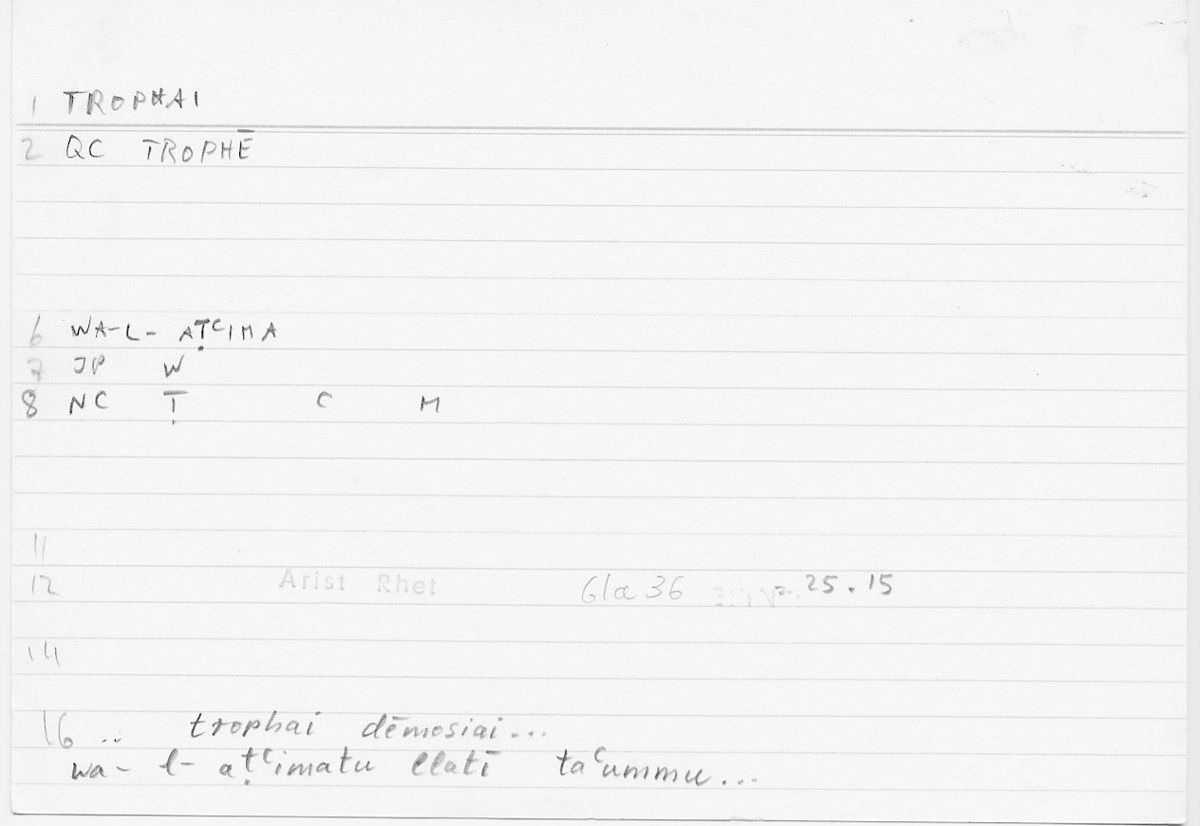 1 TROPHAI
2 QC TROPHĒ
6 WA-L- AṬʿIMA
7 JP W
8 NC Ṭ ʿ M
11
12 Arist Rhet 61a36 25.15
14
16 .. trophai dēmosiai...
wa- l- aṭʿimatu llatī taʿummu...